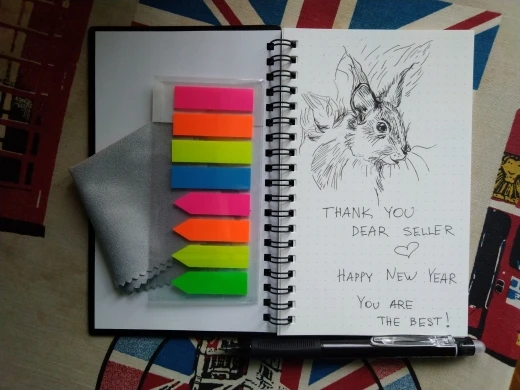 THANK YOU
DEAR SELLER
HAPPY NEW YEAR
YOU ARE
THE BEST!